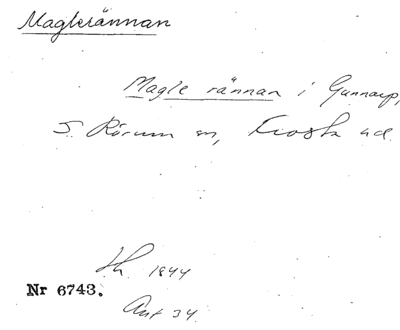 Maglerännan
Magle rännan i Gunnarp,
S. Rörum sn, Frosta hd.
Lh 1844
Nr 6743.
Ant 34